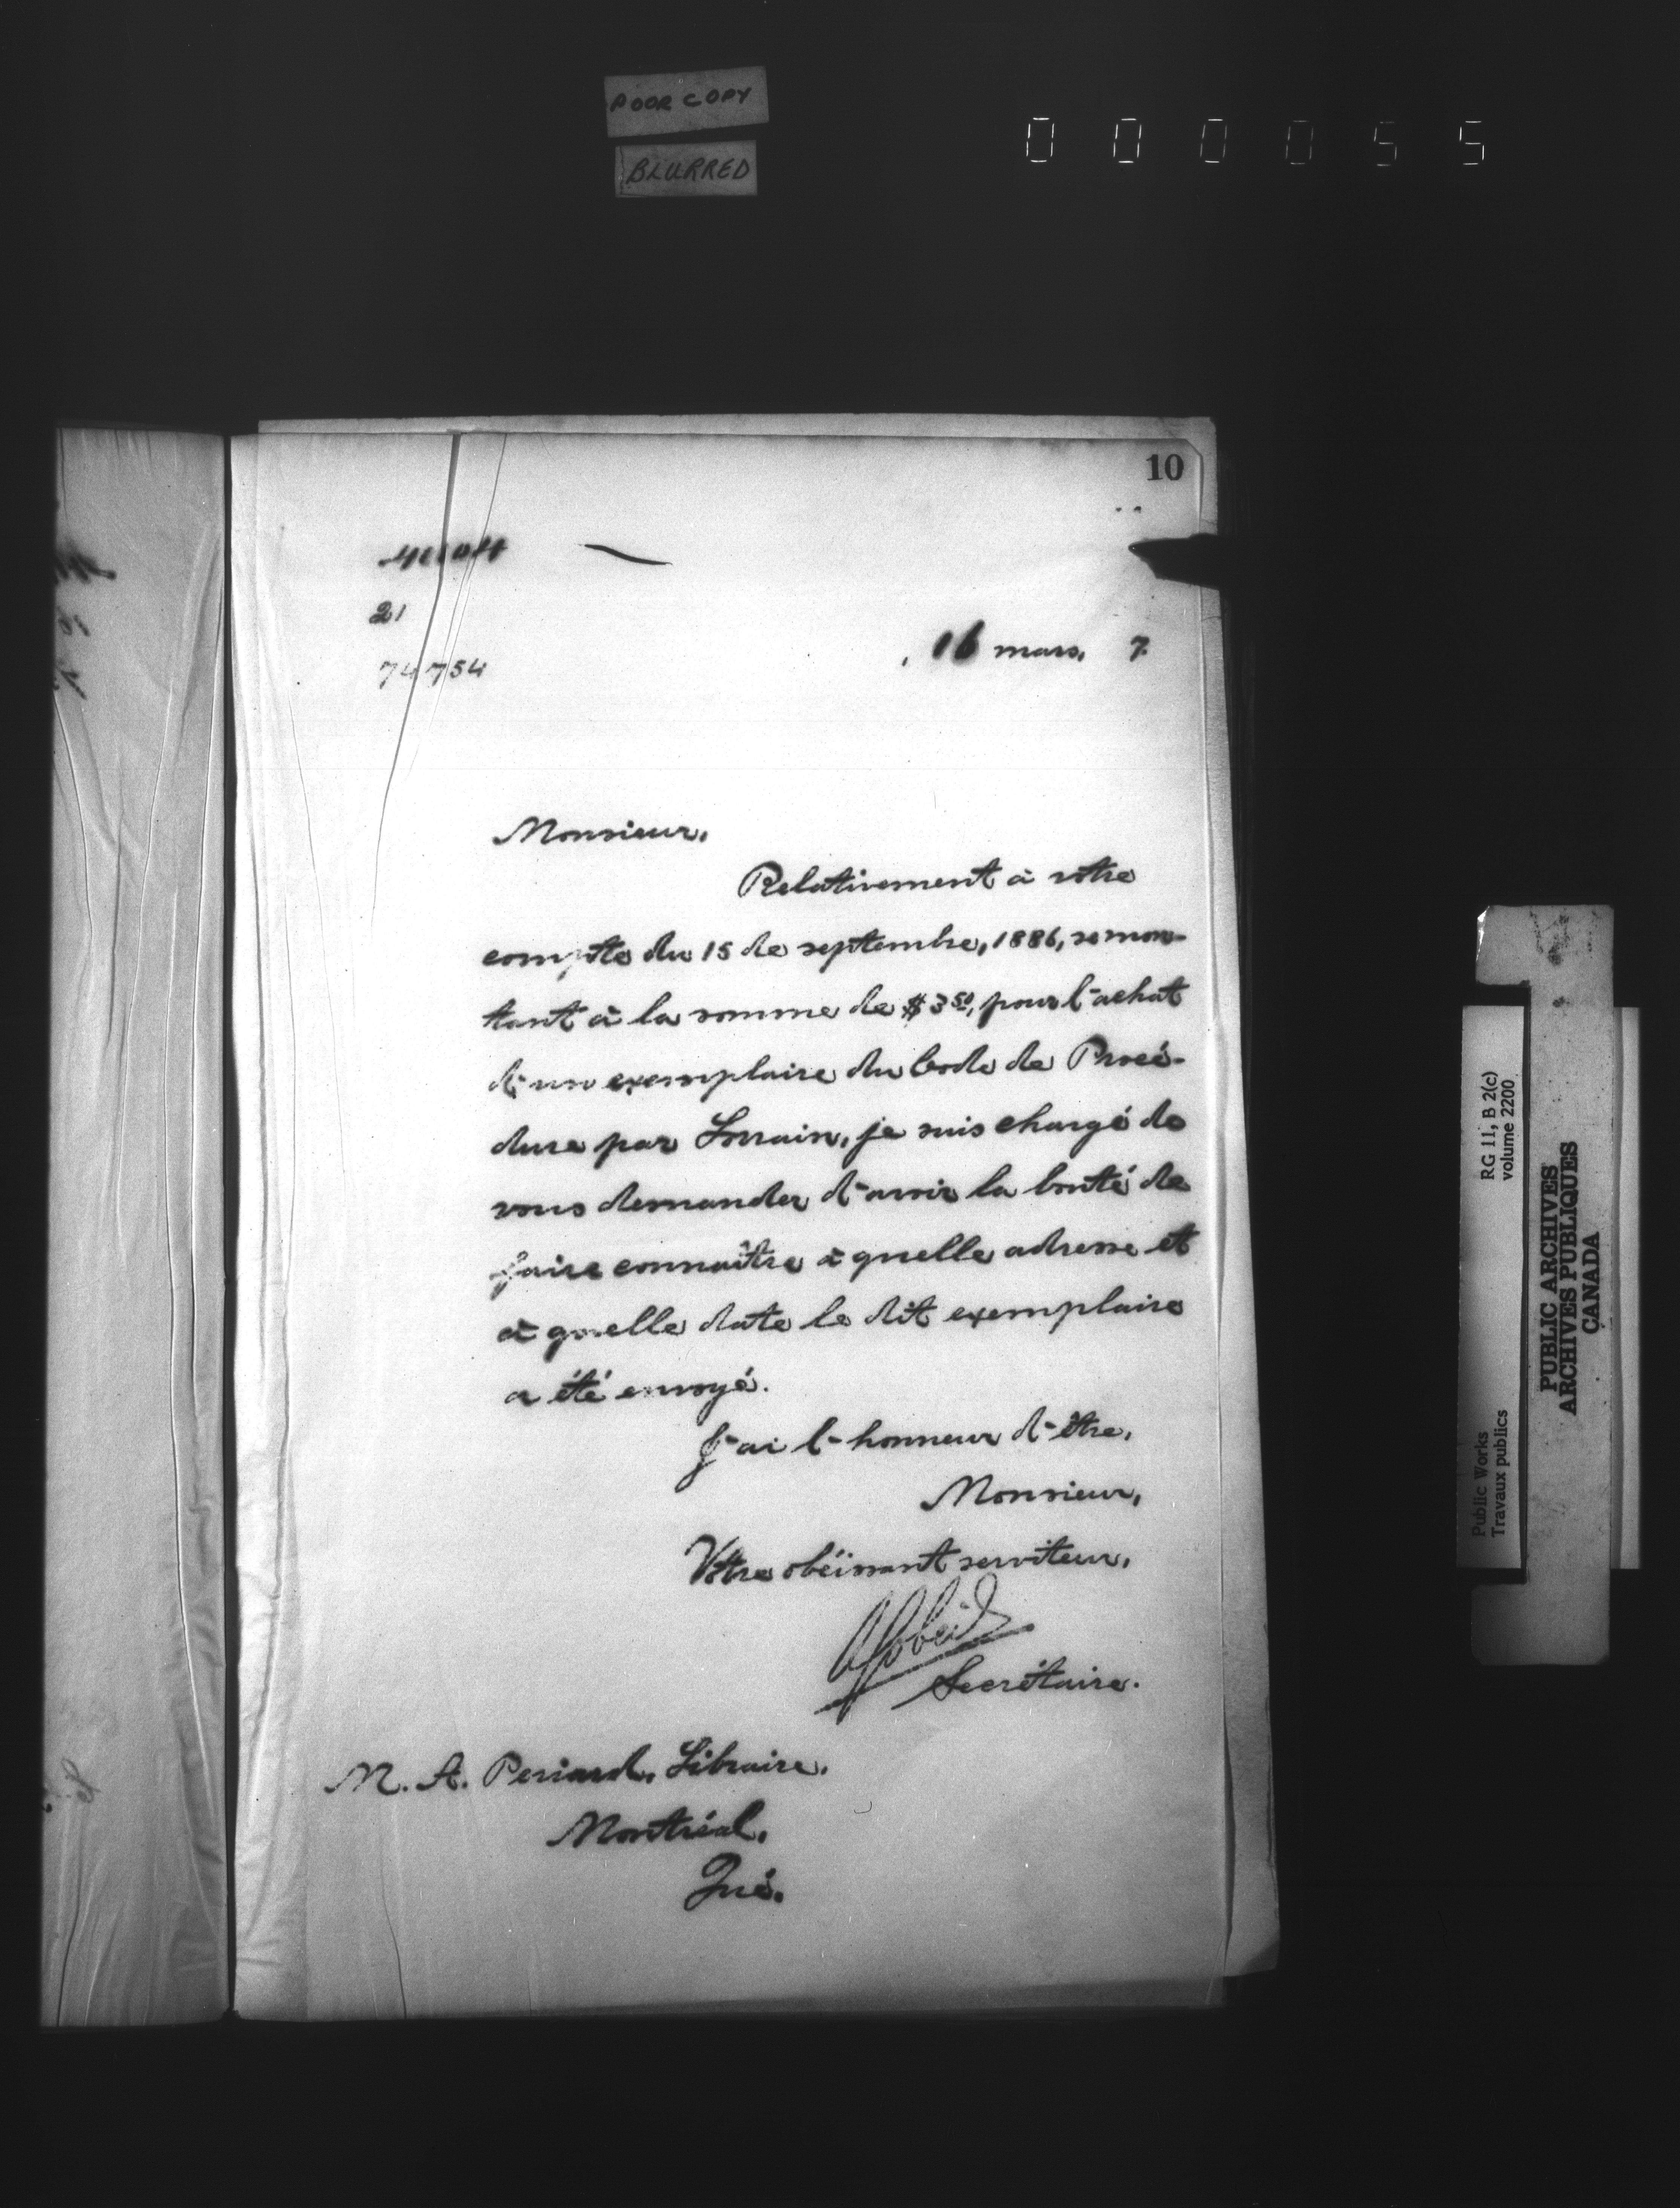 POOR COPY
BLURRED
000055
10
21
74754
16 mars, 7.
Monsieur,
Relativement à votre
compte du 15 de septembre, 1886, se mon-
tant à la somme de $3.50, pour l'achat
d'un exemplaire du Code de Procé-
dure par Lorrain, je suis chargé de
vous demander d'avoir la bonté de
faire connaître à quelle adresse et
à quelle date le dit exemplaire
a été envoyé.
J'ai l'honneur d'être,
Monsieur,
Votre obéissant serviteur,
Gobeil
Secrétaire.
M. A. Periard, Libraire.
Montréal,
Qué.
RG 11, B 2(c)
volume 2200
Public Works
Travaux publics
PUBLIC ARCHIVES
ARCHIVES PUBLIQUES
CANADA